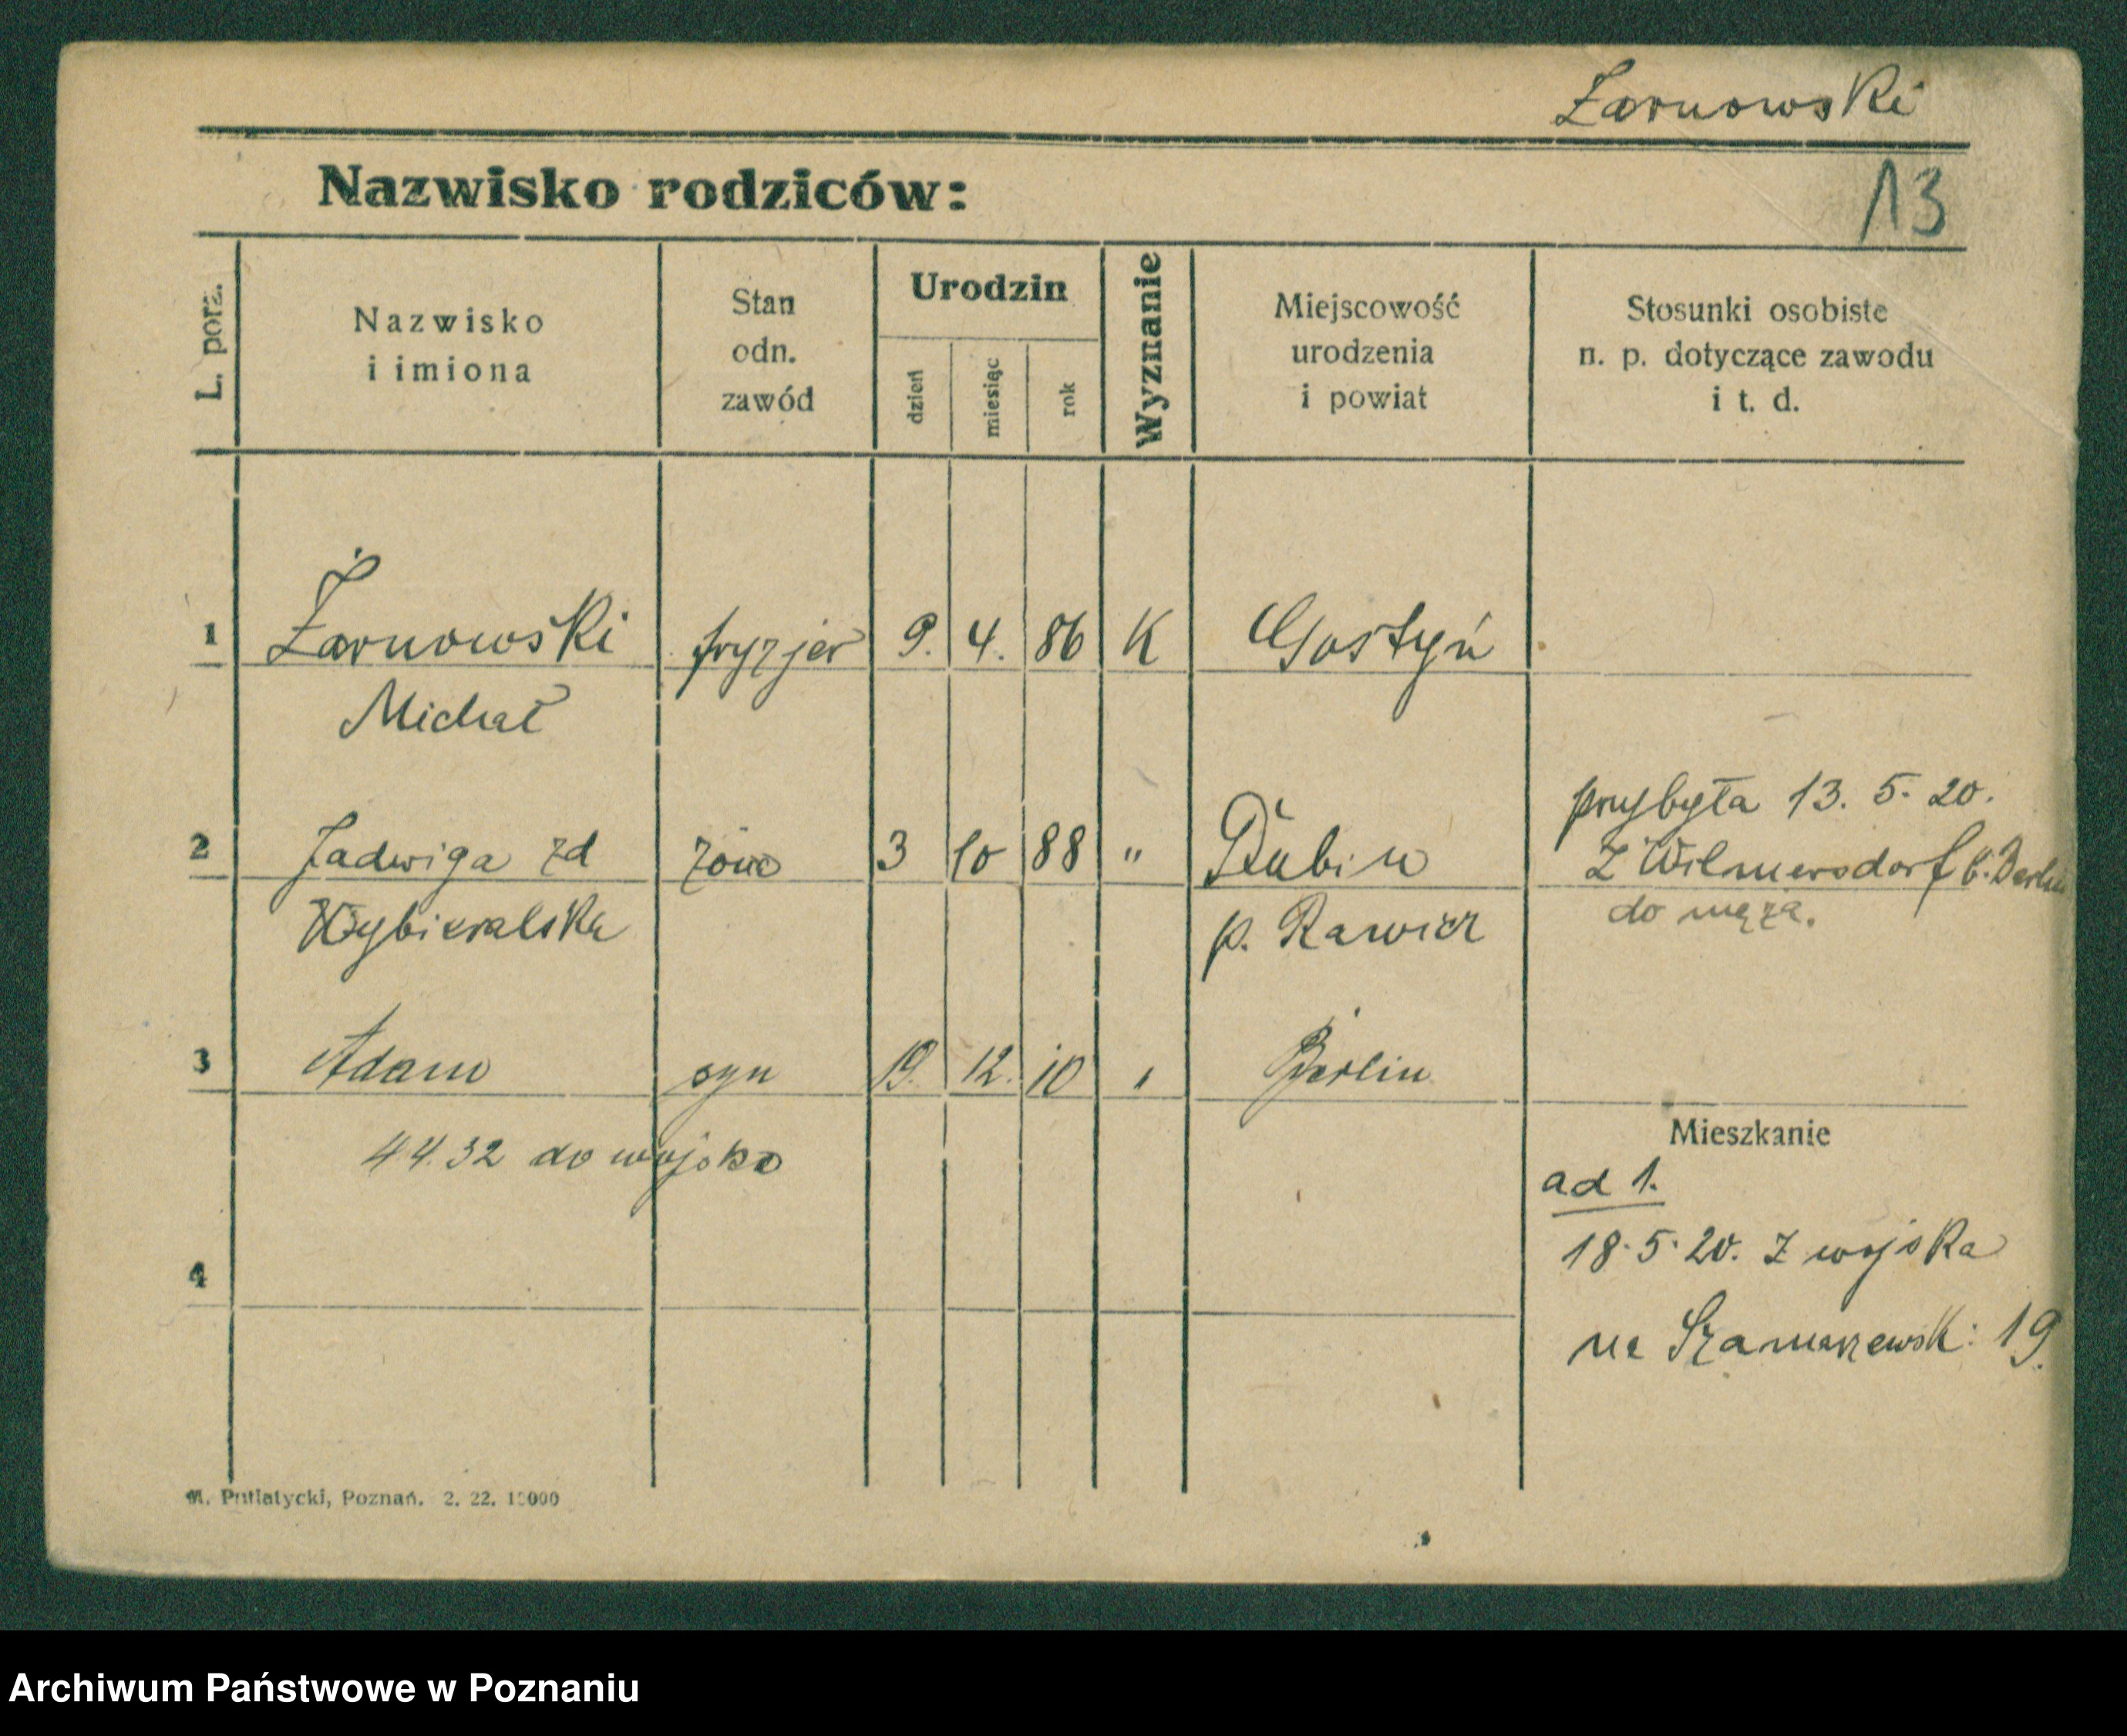 Żarnowski
Nazwisko rodziców:
13
L. porz.
Nazwisko
i imiona
Stan
odn.
zawód
Urodzin
dzień
miesiąc
rok
Wyznanie
Miejscowość
urodzenia
i powiat
Stosunki osobiste
n. p. dotyczące zawodu
i t. d.
1 Żarnowski fryzjer 9. 4. 86 K Gostyń
Michał
przybyła 13. 5. 20.
2 Jadwiga zd żona 3 10 88 " Dubin Z Wilmersdorf b. Berlin
Wybieralska p. Rawicz do męża.
3 Adam syn 19. 12. 10 " Berlin
Mieszkanie
4 4. 32 do wojska
ad 1.
18. 5. 20. z wojska
4
na Szamarzewsk: 19.
M. Putiatycki, Poznań. 2. 22. 10000
Archiwum Państwowe w Poznaniu